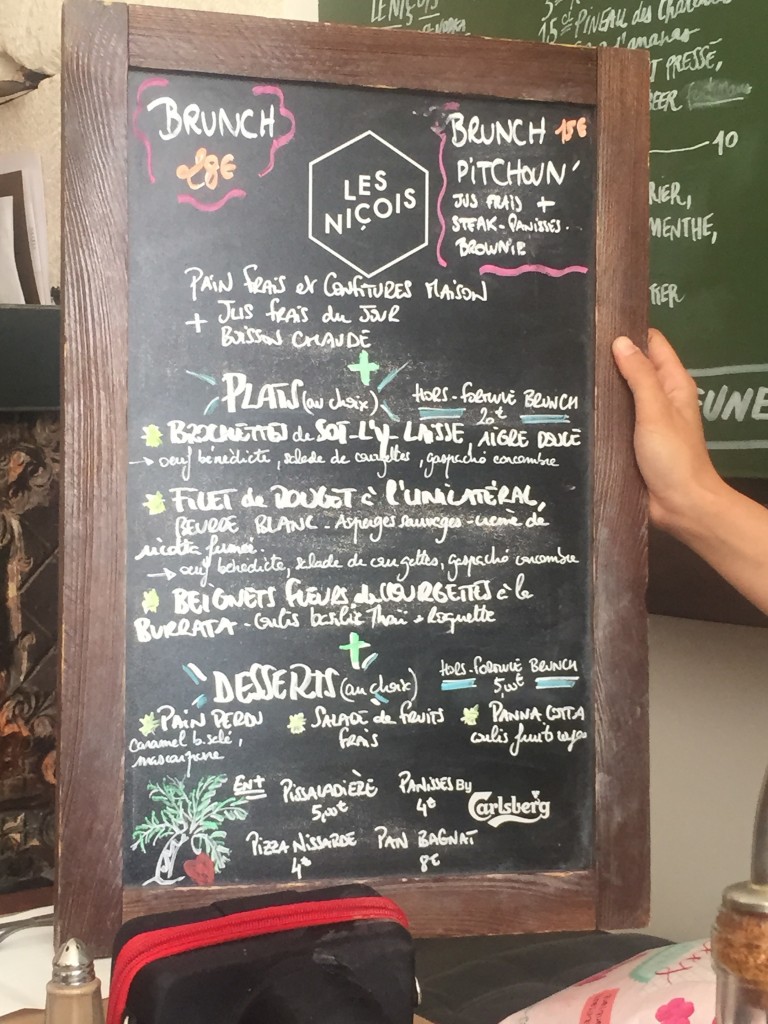 BRUNCH
28€
LES
NIÇOIS
BRUNCH 15€
PITCHOUN'
JUS FRAIS +
STEAK-PANISSES.
BROWNIE
PAIN FRAIS et CONFITURES MAISON
+ JUS FRAIS du JOUR
BOISSON CHAUDE
+
PLATS (au choix)
HORS-FORMULE BRUNCH
20€
BROCHETTES de SOT-L'Y-LAISSE, AIGRE DOUCE
→ oeuf bénédicte, salade de courgettes, gaspacho concombre
FILET de ROUGET à L'UNILATÉRAL,
BEURRE BLANC - Asperges sauvages - crème de
ricotta fumée.
→ oeuf bénédicte, salade de courgettes, gaspacho concombre
BEIGNETS FLEURS de COURGETTES à la
BURRATA - Coulis basilic Thaï + Roquette
+
DESSERTS (au choix)
HORS-FORMULE BRUNCH
5,00€
PAIN PERDU
caramel b. salé,
mascarpone
SALADE de FRUITS
FRAIS
PANNA COTTA
coulis fruit
EN +
PISSALADIÈRE
5,00€
PANISSES By
4€
Carlsberg
PIZZA NISSARDE
4€
PAN BAGNAT
8€
PINEAU des
15
d'ananas
PRESSÉ,
10
MENTHE,